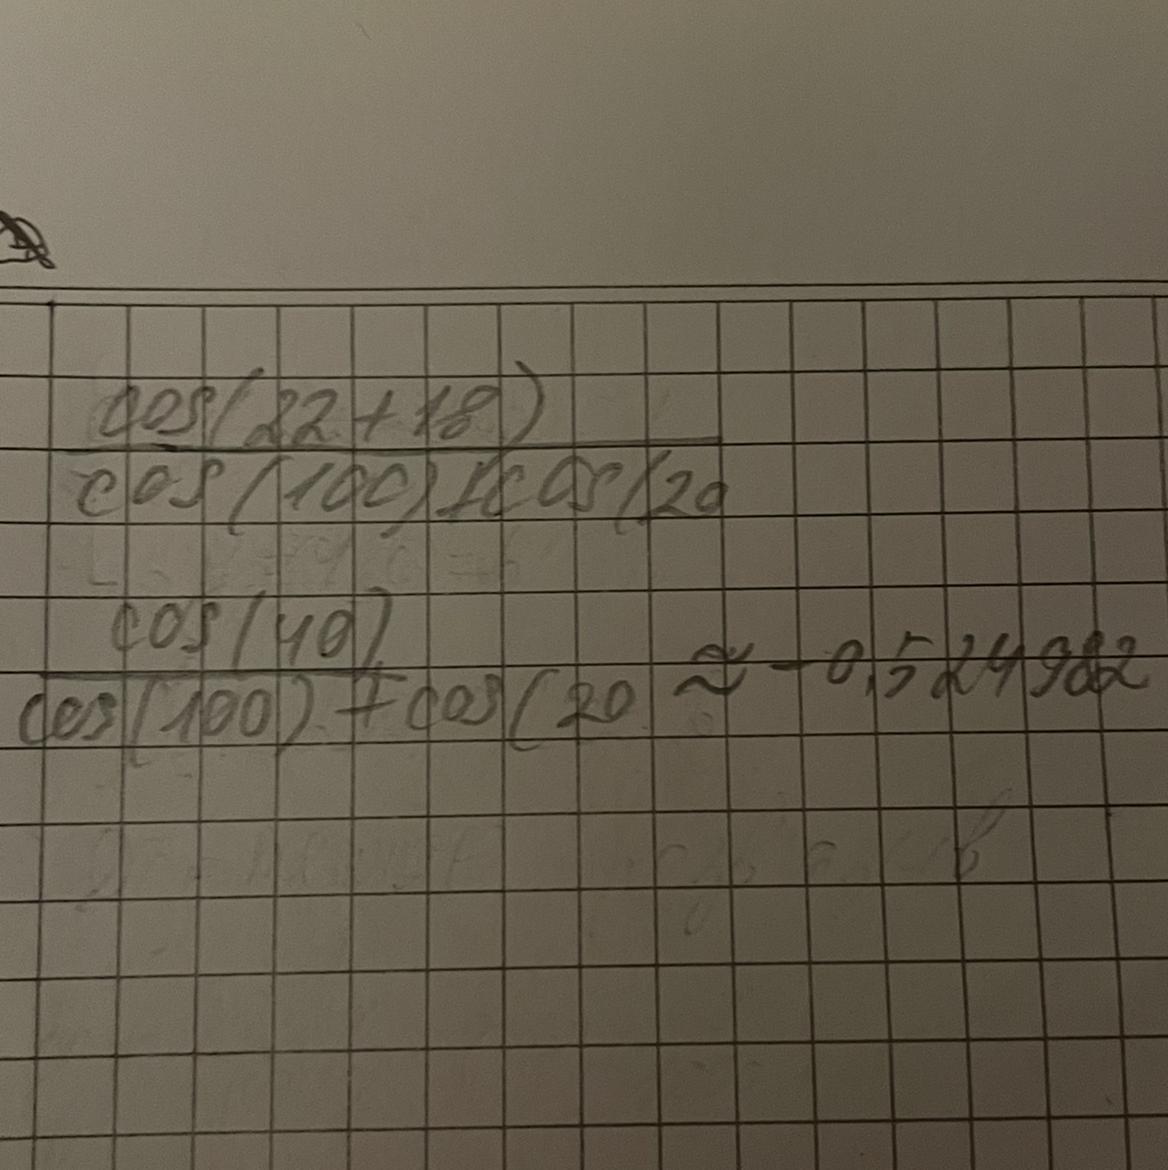 cos(22+18)
cos(100)+cos(20
cos(40)
cos(100)+cos(20 ≈ -0,524982